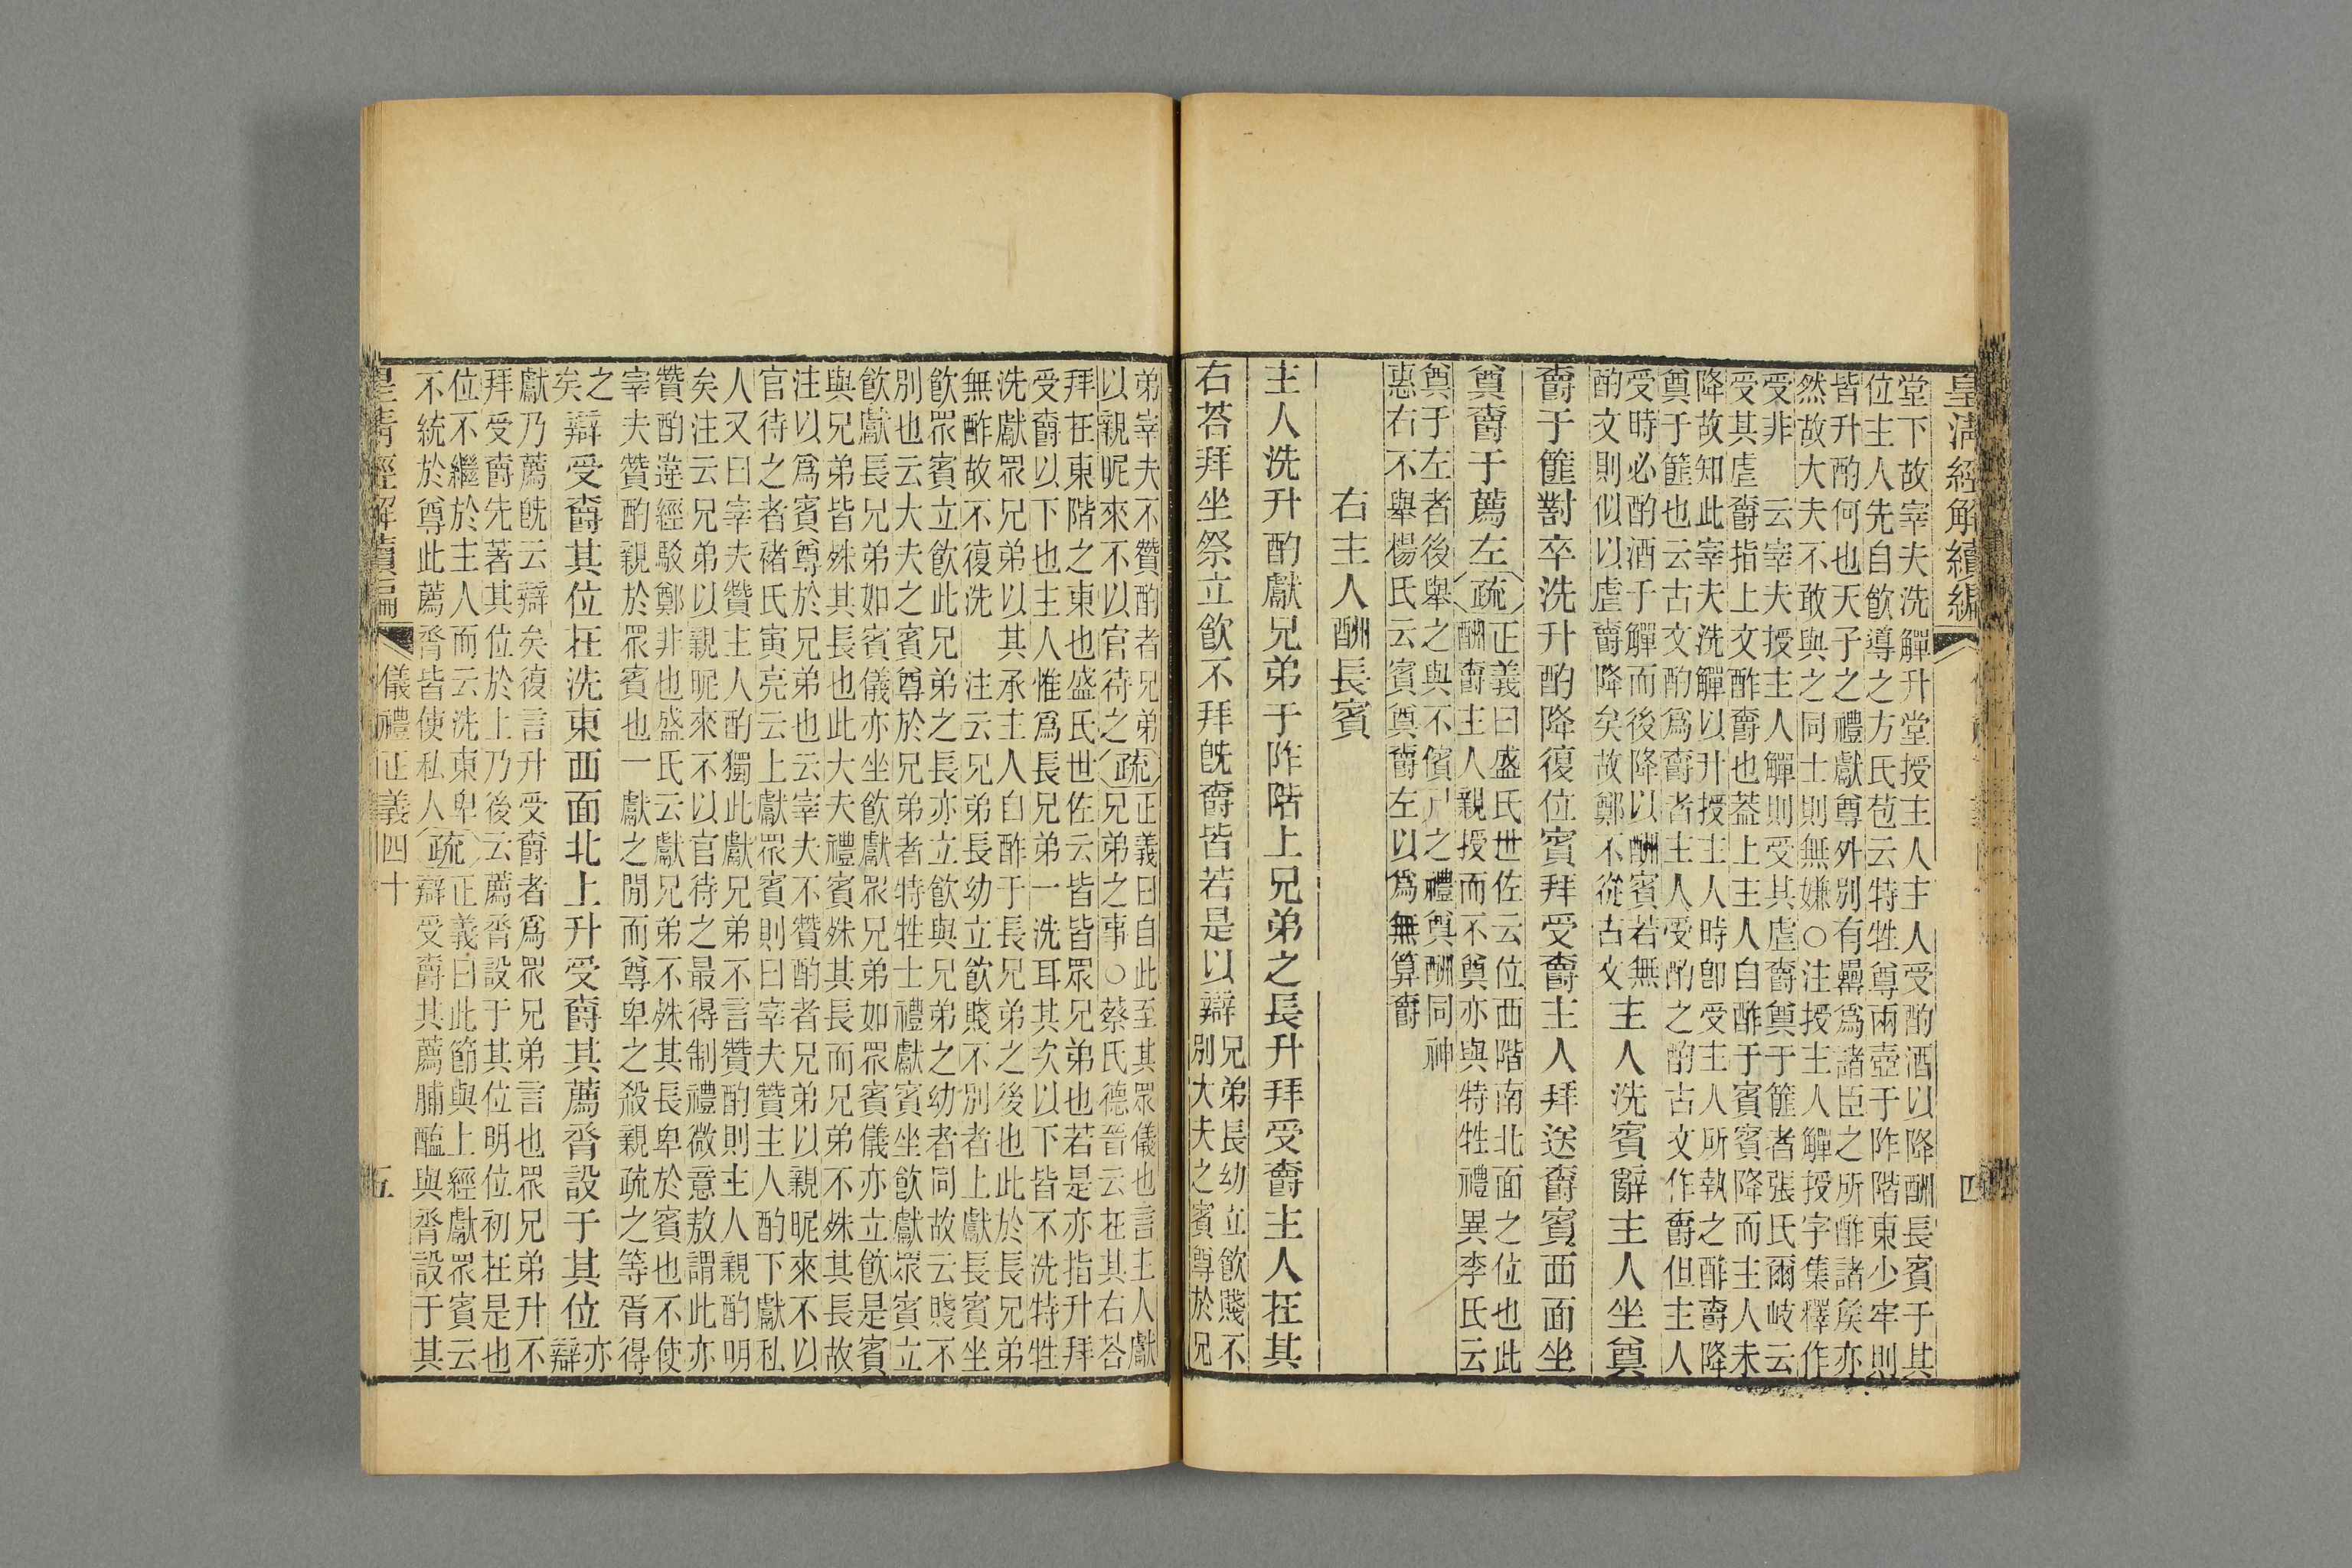 皇清經解續編
堂下故宰夫洗觶升堂授主人主人受酌酒以降酬長賓于其
位主人先自飮導之方氏苞云特牲尊兩壺于阼階東少牢則
皆升酌何也天子之禮獻尊外別有罍爲諸臣之所酢諸矦亦
然故大夫不敢與之同士則無嫌○注授主人觶授字集釋作
受非　云宰夫授主人觶則受其虛爵奠于篚者張氏爾岐云
受其虛爵指上文酢爵也葢上主人自酢于賓賓降而主人未
降故知此宰夫洗觶以升授主人時卽受主人所執之酢爵降
奠于篚也云古文酌爲爵者主人受酌之酌古文作爵但主人
受時必酌酒于觶而後降以酬賓若無
酌文則似以虛爵降矣故鄭不從古文
主人洗賓辭主人坐奠
爵于篚對卒洗升酌降復位賓拜受爵主人拜送爵賓西面坐
奠爵于薦左
疏正義曰盛氏世佐云位西階南北面之位也此
酬爵主人親授而不奠亦與特牲禮異李氏云
奠于左者後舉之與不儐尸之禮奠酬同神
惠右不舉楊氏云賓奠爵左以爲無算爵
右主人酬長賓
主人洗升酌獻兄弟于阼階上兄弟之長升拜受爵主人在其
右荅拜坐祭立飮不拜旣爵皆若是以辯
兄弟長幼立飮賤不
別大夫之賓尊於兄
弟宰夫不贊酌者兄弟
以親昵來不以官待之
疏正義曰自此至其眾儀也言主人獻
兄弟之事○蔡氏德晉云在其右荅
拜在東階之東也盛氏世佐云皆皆眾兄弟也若是亦指升拜
受爵以下也主人惟爲長兄弟一洗耳其次以下皆不洗特牲
洗獻眾兄弟以其承主人自酢于長兄弟之後也此於長兄弟
無酢故不復洗　注云兄弟長幼立飮賤不別者上獻長賓坐
飮眾賓立飮此兄弟之長亦立飮與兄弟之幼者同故云賤不
別也云大夫之賓尊於兄弟者特牲士禮獻賓坐飮獻眾賓立
飮獻長兄弟如賓儀亦坐飮獻眾兄弟如眾賓儀亦立飮是賓
與兄弟皆殊其長也此大夫禮賓殊其長而兄弟不殊其長故
注以爲賓尊於兄弟也云宰夫不贊酌者兄弟以親昵來不以
官待之者褚氏寅亮云上獻眾賓則曰宰夫贊主人酌下獻私
人又曰宰夫贊主人酌獨此獻兄弟不言贊酌則主人親酌明
矣注云兄弟以親昵來不以官待之最得制禮微意敖謂此亦
贊酌違經駁鄭非也盛氏云獻兄弟不殊其長卑於賓也不使
宰夫贊酌親於眾賓也一獻之閒而尊卑之殺親疏之等胥得
之
矣
辯受爵其位在洗東西面北上升受爵其薦脀設于其位
亦
辯
獻乃薦旣云辯矣復言升受爵者爲眾兄弟言也眾兄弟升不
拜受爵先著其位於上乃後云薦脀設于其位明位初在是也
位不繼於主人而云洗東卑
不統於尊此薦脀皆使私人
疏正義曰此節與上經獻眾賓云
辯受爵其薦脯醢與脀設于其
皇清經解續編
儀禮正義四十
五
四